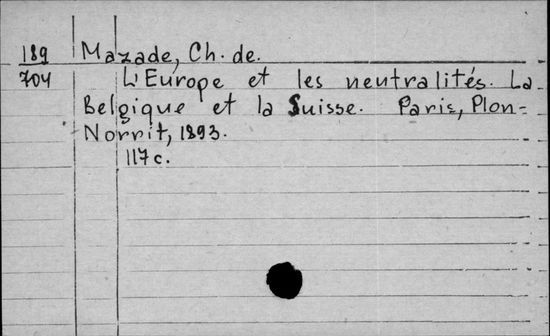 189 Mazade, Ch. de.
704 L'Europe et les neutralités. La
Belgique et la Suisse. Paris, Plon-
Norrit, 1893.
117 c.